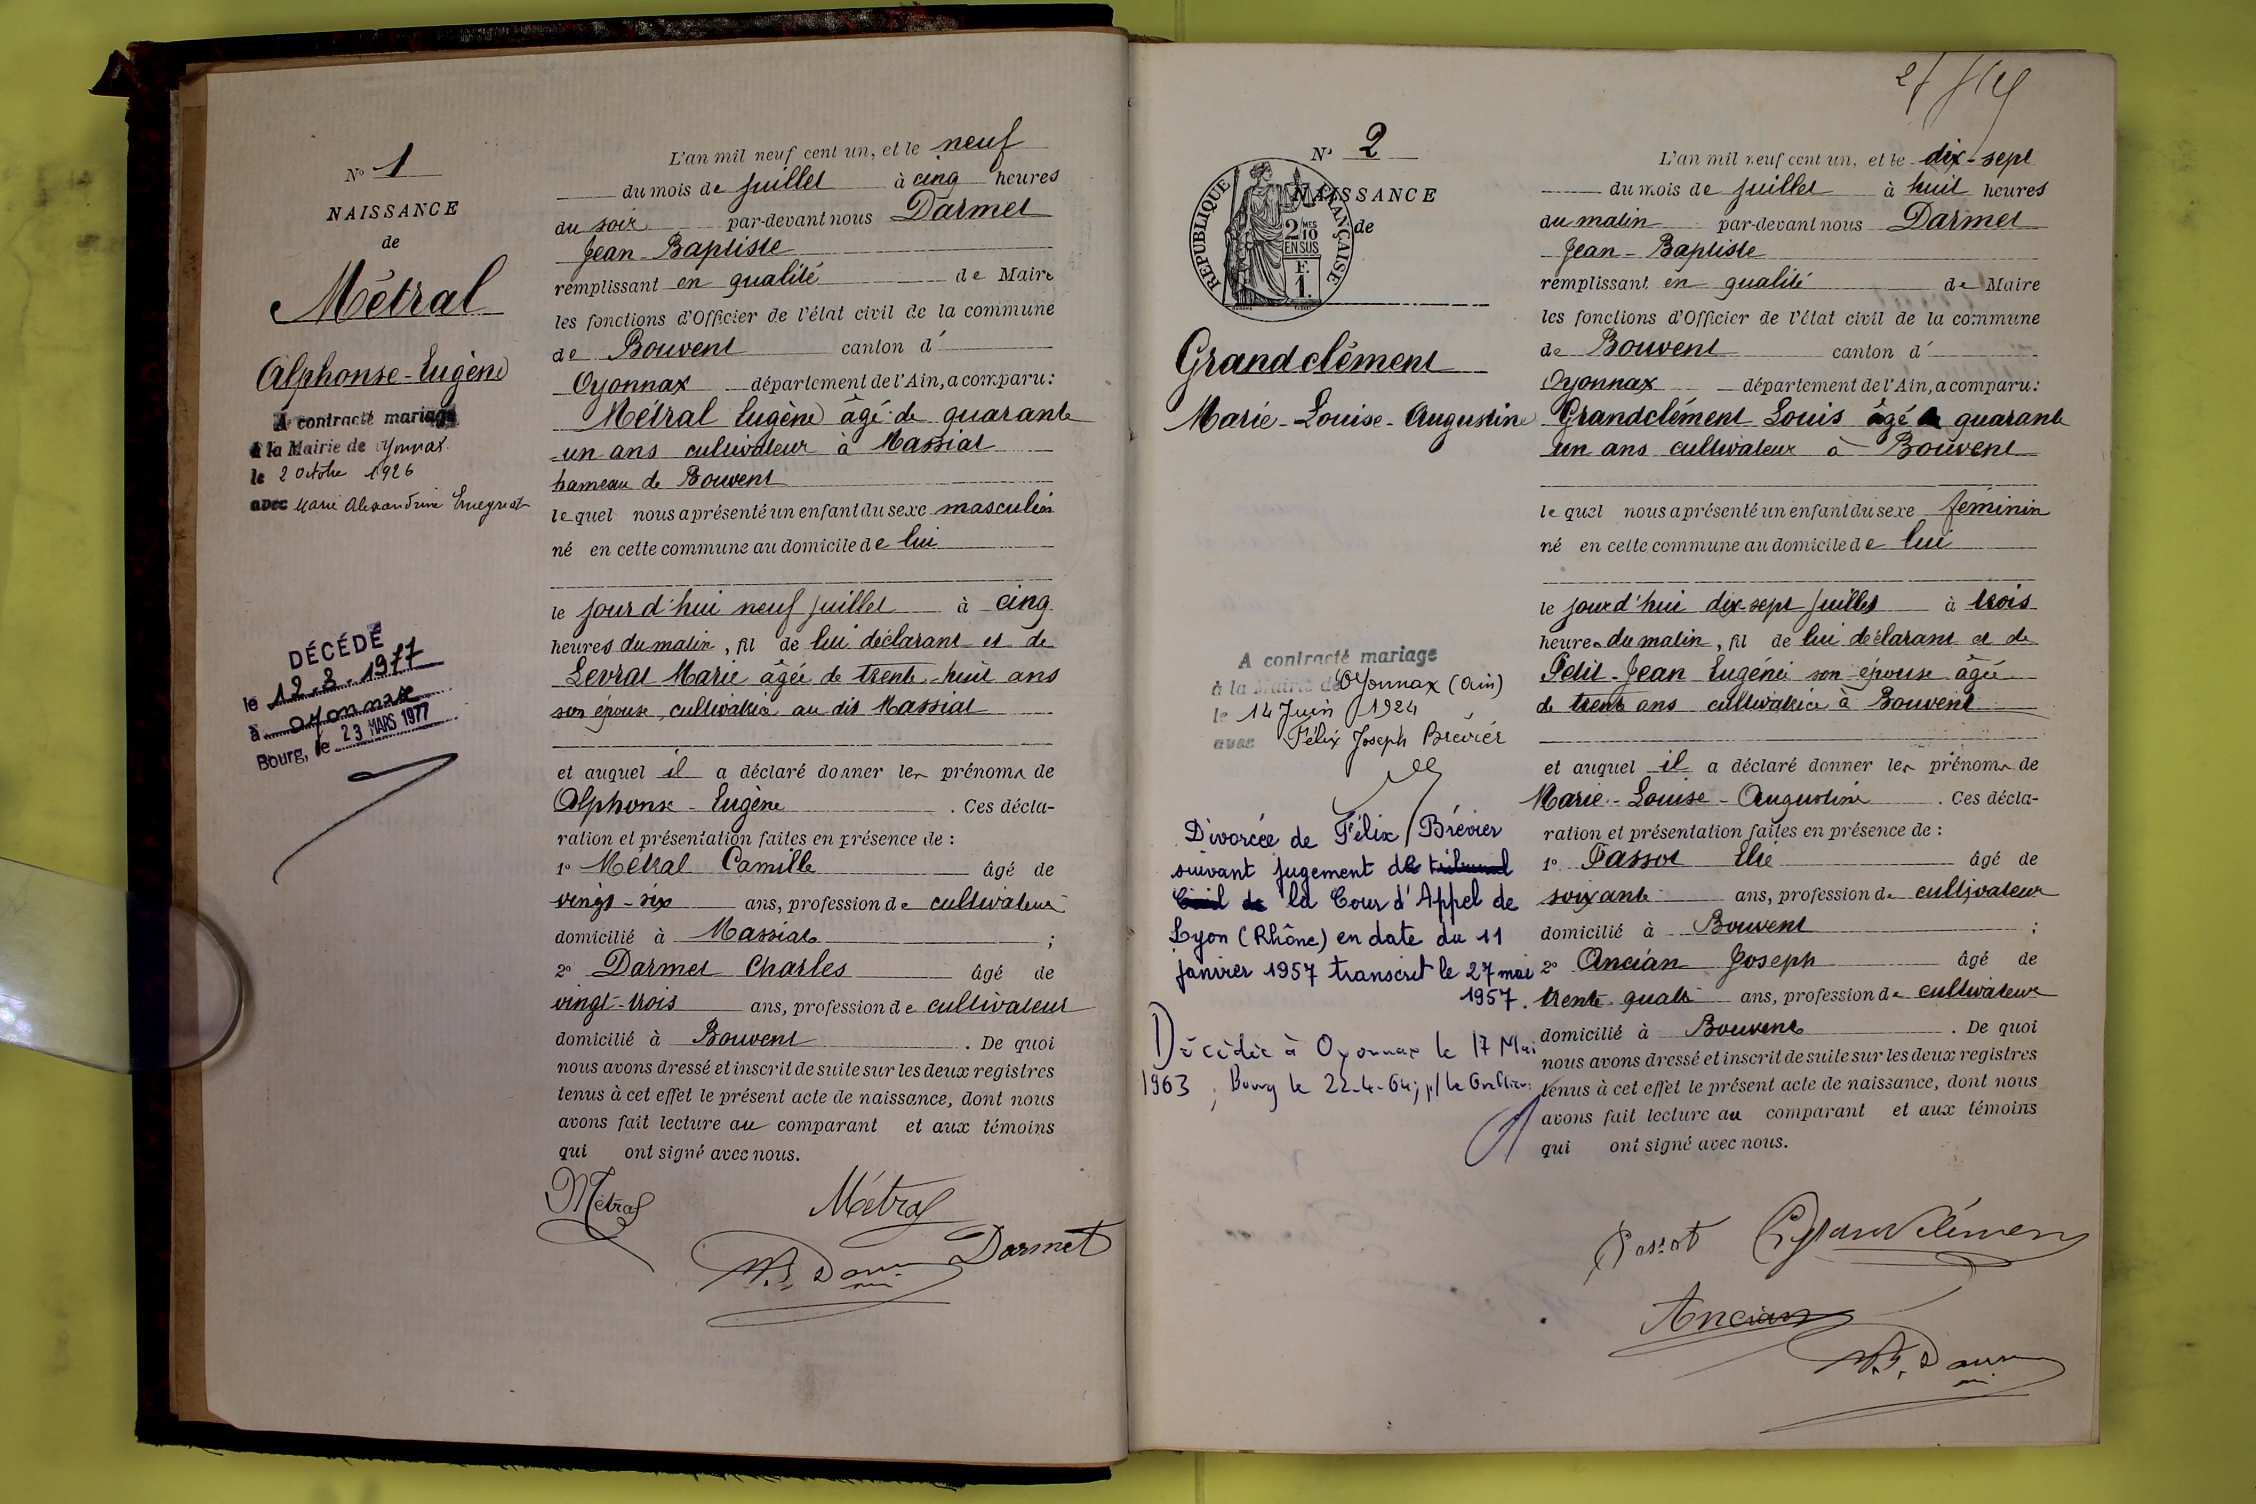 N° 1
NAISSANCE
de
Métral
Alphonse-Eugène
A contracté mariage
à la Mairie de Oyonnax
le 2 Octobre 1926
avec Marie Alexandrine
DÉCÉDÉ
le 12.3.1977
à Oyonnax
Bourg, le 23 MARS 1977
L'an mil neuf cent un, et le neuf
du mois de juillet à cinq heures
du soir par-devant nous Darmet
Jean-Baptiste
remplissant en qualité de Maire
les fonctions d'Officier de l'état civil de la commune
de Bouvent canton d'
Oyonnax département de l'Ain, a comparu:
Métral Eugène âgé de quarante
un ans cultivateur à Massiat
hameau de Bouvent
lequel nous a présenté un enfant du sexe masculin
né en cette commune au domicile de lui
le jourd'hui neuf juillet à cinq
heures du matin, fil de lui déclarant et de
Levrat Marie âgée de trente-huit ans
son épouse, cultivatrice au dit Massiat
et auquel il a déclaré donner les prénoms de
Alphonse-Eugène. Ces décla-
ration et présentation faites en présence de :
1° Métral Camille âgé de
vingt-six ans, profession de cultivateur
domicilié à Massiat ;
2° Darmet Charles âgé de
vingt-trois ans, profession de cultivateur
domicilié à Bouvent. De quoi
nous avons dressé et inscrit de suite sur les deux registres
tenus à cet effet le présent acte de naissance, dont nous
avons fait lecture au comparant et aux témoins
qui ont signé avec nous.
Métral Métral
Darmet
N° 2
NAISSANCE
de
RÉPUBLIQUE FRANÇAISE
2/10 MES
EN SUS
F.
1.
Grandclément
Marie-Louise-Augustine
A contracté mariage
à la Mairie de Oyonnax (Ain)
le 14 Juin 1924
avec Félix Joseph Brévier
Divorcée de Félix Brévier
suivant jugement de tribunal
Civil de la Cour d'Appel de
Lyon (Rhône) en date du 11
janvier 1957 transcrit le 27 mai
1957.
Décédée à Oyonnax le 17 Mai
1963, Bourg le 22-4-64; p/ le Greffier:
L'an mil neuf cent un, et le dix-sept
du mois de juillet à huit heures
du matin par-devant nous Darmet
Jean-Baptiste
remplissant en qualité de Maire
les fonctions d'Officier de l'état civil de la commune
de Bouvent canton d'
Oyonnax département de l'Ain, a comparu:
Grandclément Louis âgé de quarante
un ans cultivateur à Bouvent
lequel nous a présenté un enfant du sexe féminin
né en cette commune au domicile de lui
le jourd'hui dix-sept juillet à trois
heures du matin, fil de lui déclarant et de
Petit-Jean Eugénie son épouse âgée
de trente ans cultivatrice à Bouvent
et auquel il a déclaré donner les prénoms de
Marie-Louise-Augustine. Ces décla-
ration et présentation faites en présence de :
1° Passot Elie âgé de
soixante ans, profession de cultivateur
domicilié à Bouvent ;
2° Ancian Joseph âgé de
trente-quatre ans, profession de cultivateur
domicilié à Bouvent. De quoi
nous avons dressé et inscrit de suite sur les deux registres
tenus à cet effet le présent acte de naissance, dont nous
avons fait lecture au comparant et aux témoins
qui ont signé avec nous.
Passot Grandclément
Ancian